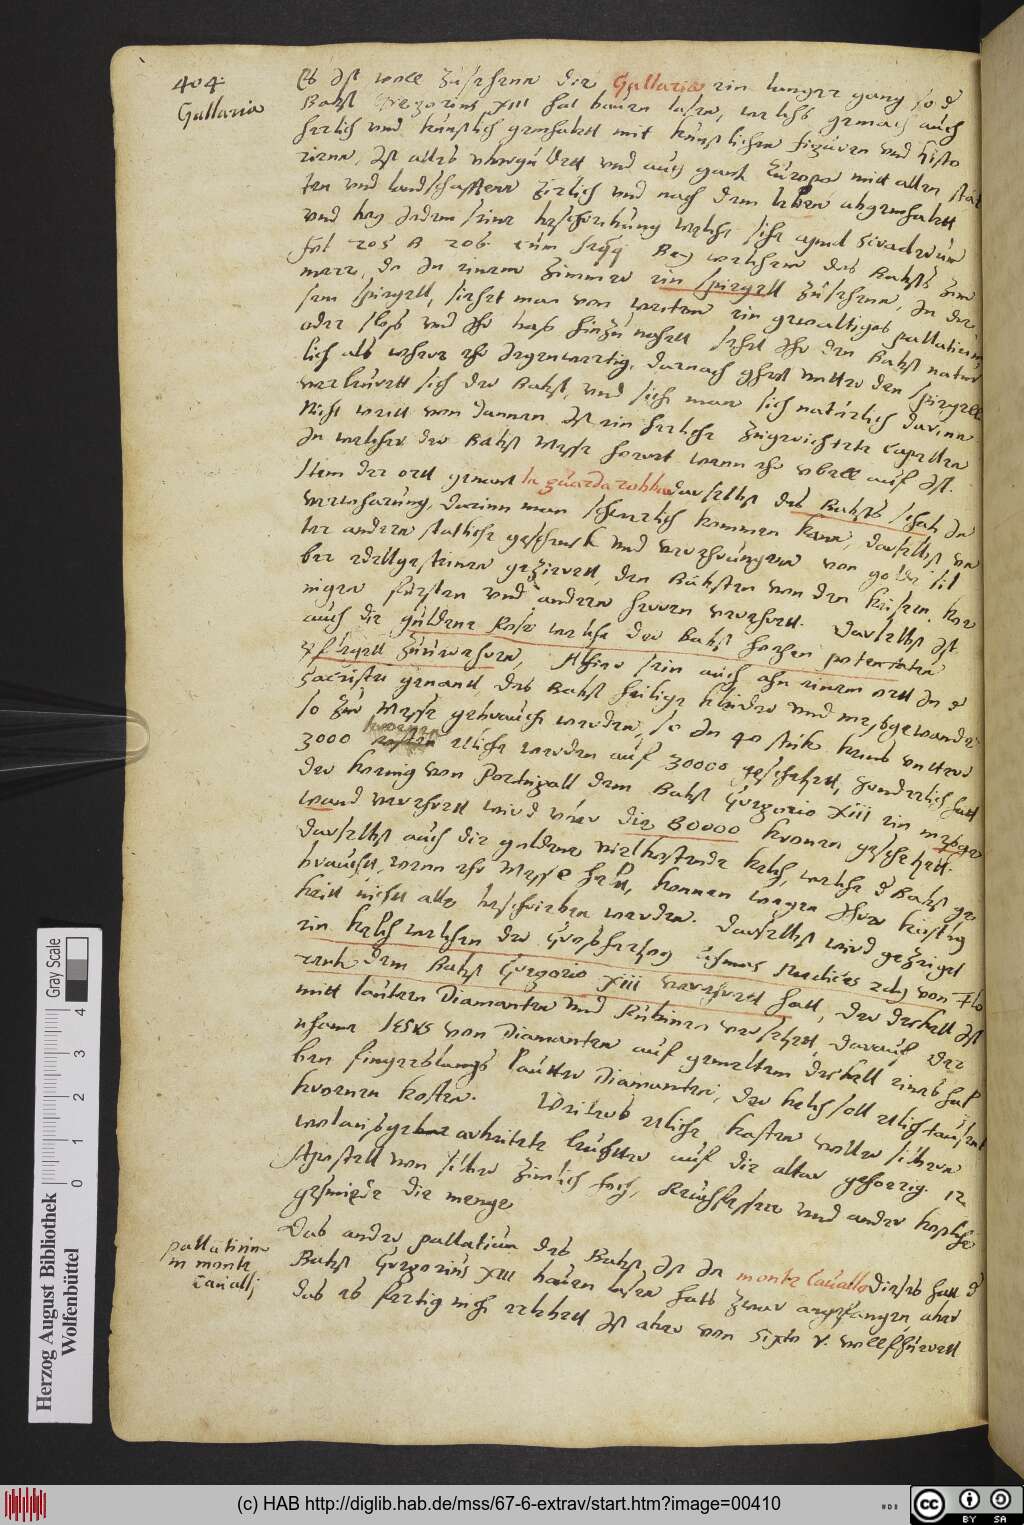 404
Gallaria
Es Ist woll zusehenn die Gallaria ein langer gang so d
Babst Gregorius XIII hat bauen lasen, welchs gemach auch
herlich und kunstlich gemahlett mit kunslichen figuren und histo
rienn, Ist alles uberguldett und auch gantz Europa mitt allen stät
ten und landschafftenn zirlich und nach dem leben abgemahlett
und bey Jedem seine beschreibung welche sihe apud
fol 205 B 206 cum seqq Bey welchem des Babsts Zim
mere, do In einem Zimmer ein spiegell zusehenn, In die
sem spiegell, siehet man von weiten ein gewaltiges pallatium
oder slos und Ihe bas hinzu nahett sehet Ihr den Babst natur
lich als wehre ehr Iegenwertig, darnach hinter den spiegell
verleurett sich der Babst, und siht man sich naturlich darinn
Nicht weitt von dannen Ist ein herliche zugerichtete Capellen
In welcher der Babst Messe horet wenn ehr ubell auf Ist.
Item der ortt genant la guarda robba daselbst des Babsts schatz In
verwharung, darinn man schwerlich kommen kann, daselbst un
ter andern statliche geschenck und verehrungenn von golde sil
ber edellgesteinen gezierett, den Bäbsten von den keisern, kon
nigen fursten und andern herren verehrett. Daselbst Ist
auch die guldene Rose welche der Babst hohen potentaten
pflegett zuuerehren, Alhier sein auch ahn einem ortt In d
Sacristei genant, des Babst heilige kleider und mesgewande
so zur Messe gebraucht werden, so In 40 stuk keins unterd
kronen
3000 kosten etliche werden auf 30000 geschetzett, sonderlich hatt
der koenig von Portugall dem Babst Gregorio XIII ein mesge
wand verehrett wird uber die 80000 kronen geschetzett.
daselbst auch die guldene vielkostende kelch, welche d Babst ge
braucht, wenn ehr Messe helt, konnen wegen Ihrer kostig
keitt nicht alle beschrieben werden. daselbst wird gezeiget
ein kelch welchen der Grosherzog Cosmus Medices von Flo
rentz dem Babst Gregorio XIII verehrett hatt, der deckell Ist
mitt lautern Diamanten und Rubinen versetzett, darauf der
nhame IESUS von Diamanten auf gemeltem deckell eines hal
ben fingerslangs lautter Diamanten, der kelch soll etlich tausent
kronen kosten. Weiters etliche kasten voller silbern
gearbeitete leuchtter auf die altar gehoerig. 12
Apostell von silber zimlich hoch, Reuchfesser und ander kostliche
geschmeide die menge
pallatium
in monte
Cauallj
Das ander pallatium des Babst Ist In monte Cauallo dieses hatt d
Babst Gregorius XIII bauen lasen hats zwar angefangen, aber
das es fertig nich erlebett Ist aber von Sixto V. vollfhürett
Herzog August Bibliothek
Wolfenbüttel
Gray Scale
0 1 2 3 4
(c) HAB http://diglib.hab.de/mss/67-6-extrav/start.htm?image=00410
cc BY SA